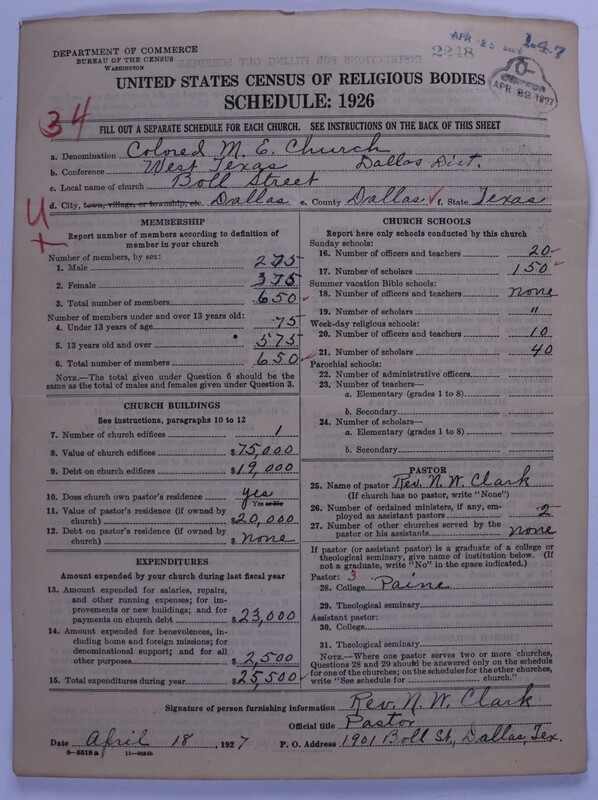 DEPARTMENT OF COMMERCE
BUREAU OF THE CENSUS
WASHINGTON
APR 25
2248
147
APR 22 1927
UNITED STATES CENSUS OF RELIGIOUS BODIES
SCHEDULE: 1926
34
FILL OUT A SEPARATE SCHEDULE FOR EACH CHURCH. SEE INSTRUCTIONS ON THE BACK OF THIS SHEET
a. Denomination Colored M. E. Church
b. Conference West Texas Dallas Dist.
c. Local name of church Boll Street
d. City, town, village, or township, etc. Dallas e. County Dallas f. State Texas
U
MEMBERSHIP
Report number of members according to definition of
member in your church
Number of members, by sex:
1. Male 275
2. Female 375
3. Total number of members 650
Number of members under and over 13 years old:
4. Under 13 years of age 75
5. 13 years old and over 575
6. Total number of members 650
NOTE.—The total given under Question 6 should be the
same as the total of males and females given under Question 3.
CHURCH BUILDINGS
See instructions, paragraphs 10 to 12
7. Number of church edifices 1
8. Value of church edifices $75,000
9. Debt on church edifices $19,000
10. Does church own pastor's residence yes
Yes or No
11. Value of pastor's residence (if owned by
church) $20,000
12. Debt on pastor's residence (if owned by
church) $ None
EXPENDITURES
Amount expended by your church during last fiscal year
13. Amount expended for salaries, repairs,
and other running expenses; for im-
provements or new buildings; and for
payments on church debt $23,000
14. Amount expended for benevolences, in-
cluding home and foreign missions; for
denominational support; and for all
other purposes $2,500
15. Total expenditures during year $25,500
CHURCH SCHOOLS
Report here only schools conducted by this church
Sunday schools:
16. Number of officers and teachers 20
17. Number of scholars 150
Summer vacation Bible schools:
18. Number of officers and teachers none
19. Number of scholars "
Week-day religious schools:
20. Number of officers and teachers 10
21. Number of scholars 40
Parochial schools:
22. Number of administrative officers
23. Number of teachers—
a. Elementary (grades 1 to 8)
b. Secondary
24. Number of scholars—
a. Elementary (grades 1 to 8)
b. Secondary
PASTOR
25. Name of pastor Rev. N. W. Clark
(If church has no pastor, write "None")
26. Number of ordained ministers, if any, em-
ployed as assistant pastors 2
27. Number of other churches served by the
pastor or his assistants none
If pastor (or assistant pastor) is a graduate of a college or
theological seminary, give name of institution below. (If
not a graduate, write "No" in the space indicated.)
Pastor: 3
28. College Paine
29. Theological seminary
Assistant pastor:
30. College
31. Theological seminary
NOTE.—Where one pastor serves two or more churches,
Questions 28 and 29 should be answered only on the schedule
for one of the churches; on the schedules for the other churches,
write "See schedule for church."
Signature of person furnishing information Rev. N. W. Clark
Official title Pastor
Date April 18, 1927 P. O. Address 1901 Boll St., Dallas, Tex.
8—5518a 11—9054b